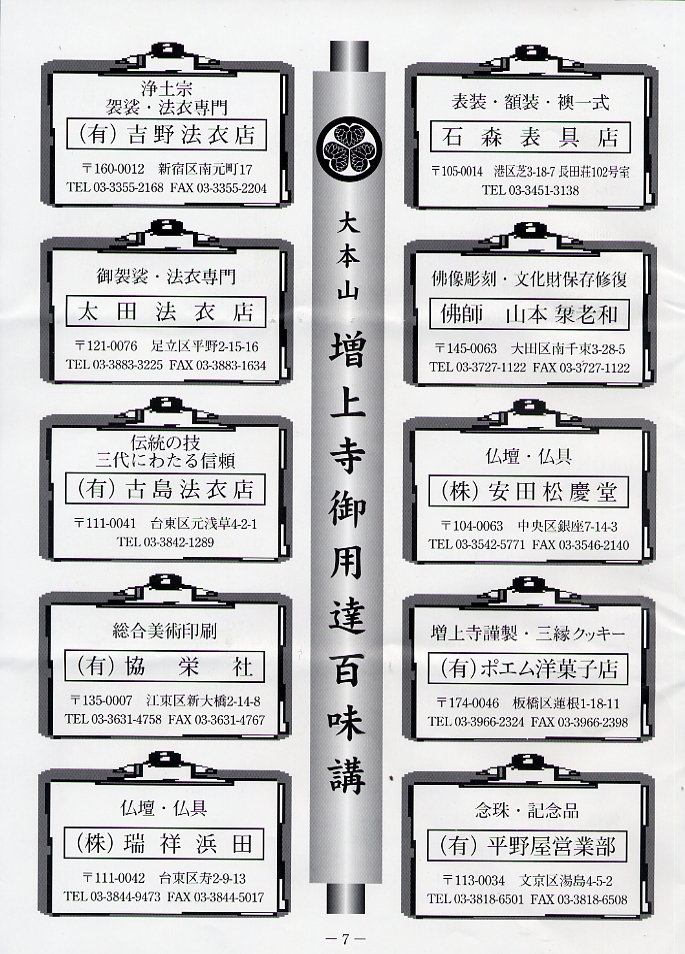 浄土宗
袈裟・法衣専門
(有)吉野法衣店
〒160-0012 新宿区南元町17
TEL 03-3355-2168 FAX 03-3355-2204
御袈裟・法衣専門
太田法衣店
〒121-0076 足立区平野2-15-16
TEL 03-3883-3225 FAX 03-3883-1634
伝統の技
三代にわたる信頼
(有)古島法衣店
〒111-0041 台東区元浅草4-2-1
TEL 03-3842-1289
総合美術印刷
(有)協栄社
〒135-0007 江東区新大橋2-14-8
TEL 03-3631-4758 FAX 03-3631-4767
仏壇・仏具
(株)瑞祥浜田
〒111-0042 台東区寿2-9-13
TEL 03-3844-9473 FAX 03-3844-5017
大本山 増上寺御用達百味講
表装・額装・襖一式
石森表具店
〒105-0014 港区芝3-18-7 長田荘102号室
TEL 03-3451-3138
佛像彫刻・文化財保存修復
佛師 山本栞老和
〒145-0063 大田区南千束3-28-5
TEL 03-3727-1122 FAX 03-3727-1122
仏壇・仏具
(株)安田松慶堂
〒104-0063 中央区銀座7-14-3
TEL 03-3542-5771 FAX 03-3546-2140
増上寺謹製・三縁クッキー
(有)ポエム洋菓子店
〒174-0046 板橋区蓮根1-18-11
TEL 03-3966-2324 FAX 03-3966-2398
念珠・記念品
(有)平野屋営業部
〒113-0034 文京区湯島4-5-2
TEL 03-3818-6501 FAX 03-3818-6508
－7－